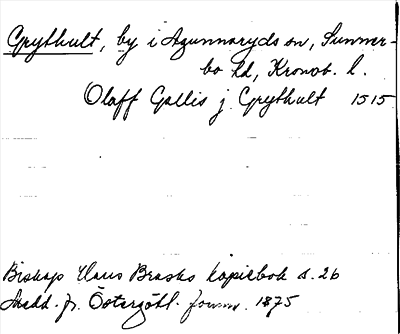 Grythult, by i Agunnaryds sn, Sunner-
bo hd, Kronob. l.
Olaff Gallis j Grythult 1515
Biskop Hans Brasks kopiebok s. 26
Medd. fr. Östergötl. fornm. 1875